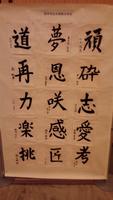 頑砕志愛考
夢恩咲感匠
道再力楽挑